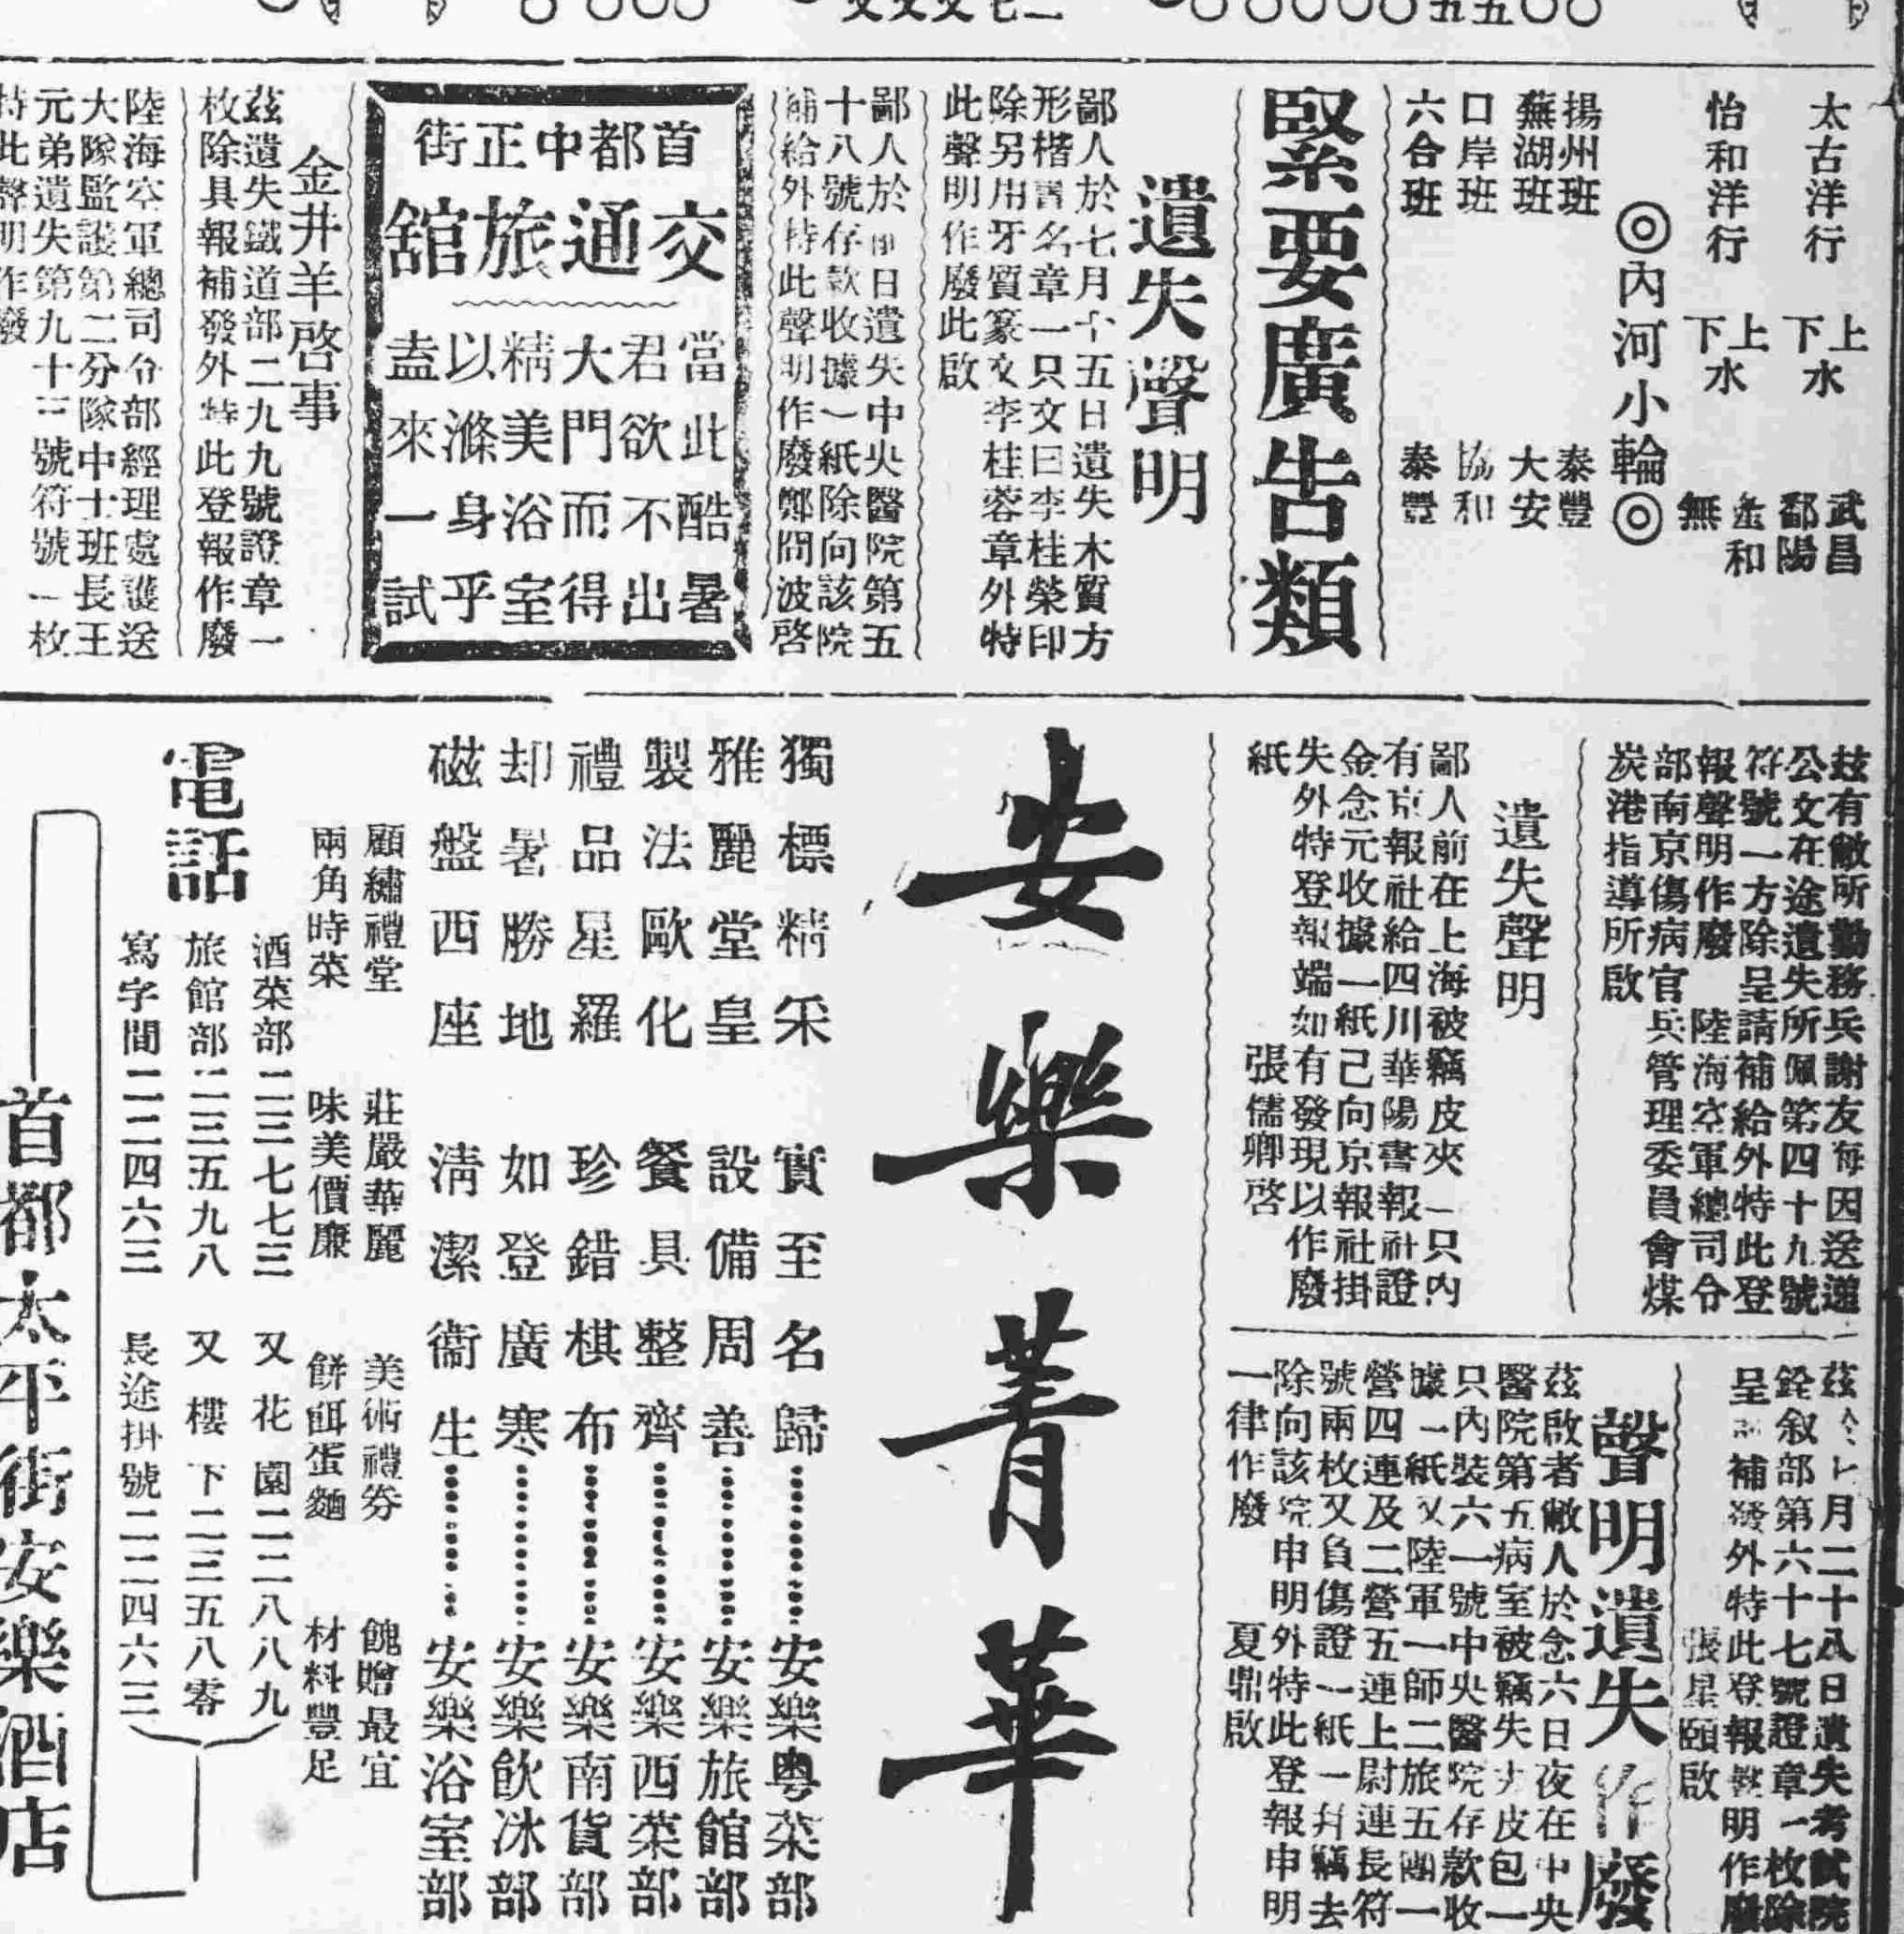 太古洋行　上水　武昌
下水　鄱陽
怡和洋行　上水　和
下水　無
◎內河小輪◎
揚州班　泰豐
蕪湖班　大安
口岸班　協和
六合班　泰豐
緊要廣告類
遺失聲明
鄙人於七月十五日遺失木質方
形楷書名章一只文曰李桂榮印
除另用牙質篆文李桂蓉章外特
此聲明作廢此啟
鄙人於日遺失中央醫院第五
十八號存款收據一紙除向該院
補給外特此聲明作廢鄭問波啓
首都中正街
交通旅舘
當此酷暑
君欲不出
大門而得
精美浴室
以滌身乎
盍來一試
金井羊啓事
茲遺失鐵道部二九九號證章一
枚除具報補發外特此登報作廢
陸海空軍總司令部經理處護送
大隊監護第二分隊中士班長王
元弟遺失第九十三號符號一枚
特此聲明作廢
玆有敝所勤務兵謝友海因送遞
公文在途遺失所佩第四十九號
符號一方除呈請補給外特此登
報聲明作廢　陸海空軍總司令
部南京傷病官兵管理委員會煤
炭港指導所啟
遺失聲明
鄙人前在上海被竊皮夾一只內
有京報社給四川華陽書報社證
金念元收據一紙已向京報社掛
失外特登報端如有發現以作廢
紙　張儒卿啓
茲月二十八日遺失考試院
銓叙部第六十七號證章一枚除
呈補發外特此登報聲明作廢
張星頤啟
聲明遺失作廢
茲啟者敝人於念六日夜在中央
醫院第五病室被竊失大皮包一
只內裝六一號中央醫院存款收
據一紙又陸軍一師二旅五團一
營四連及二營五連上尉連長符
號兩枚又負傷證一紙一并竊去
除向該院申明外特此登報申明
一律作廢　夏鼎啟
安樂菁華
獨標精采　實至名歸⋯⋯安樂粵菜部
雅麗堂皇　設備周善⋯⋯安樂旅館部
製法歐化　餐具整齊⋯⋯安樂西菜部
禮品星羅　珍錯棋布⋯⋯安樂南貨部
却暑勝地　如登廣寒⋯⋯安樂飲冰部
磁盤西座　淸潔衞生⋯⋯安樂浴室部
顧繡禮堂　莊嚴華麗　美術禮券　餽贈最宜
兩角時菜　味美價廉　餅餌蛋麵　材料豐足
電話
酒菜部二三七七三　又花園二二八八九
旅館部二三五九八　又樓下二三五八零
寫字間二二四六三　長途掛號二二四六三
首都太平街安樂酒店